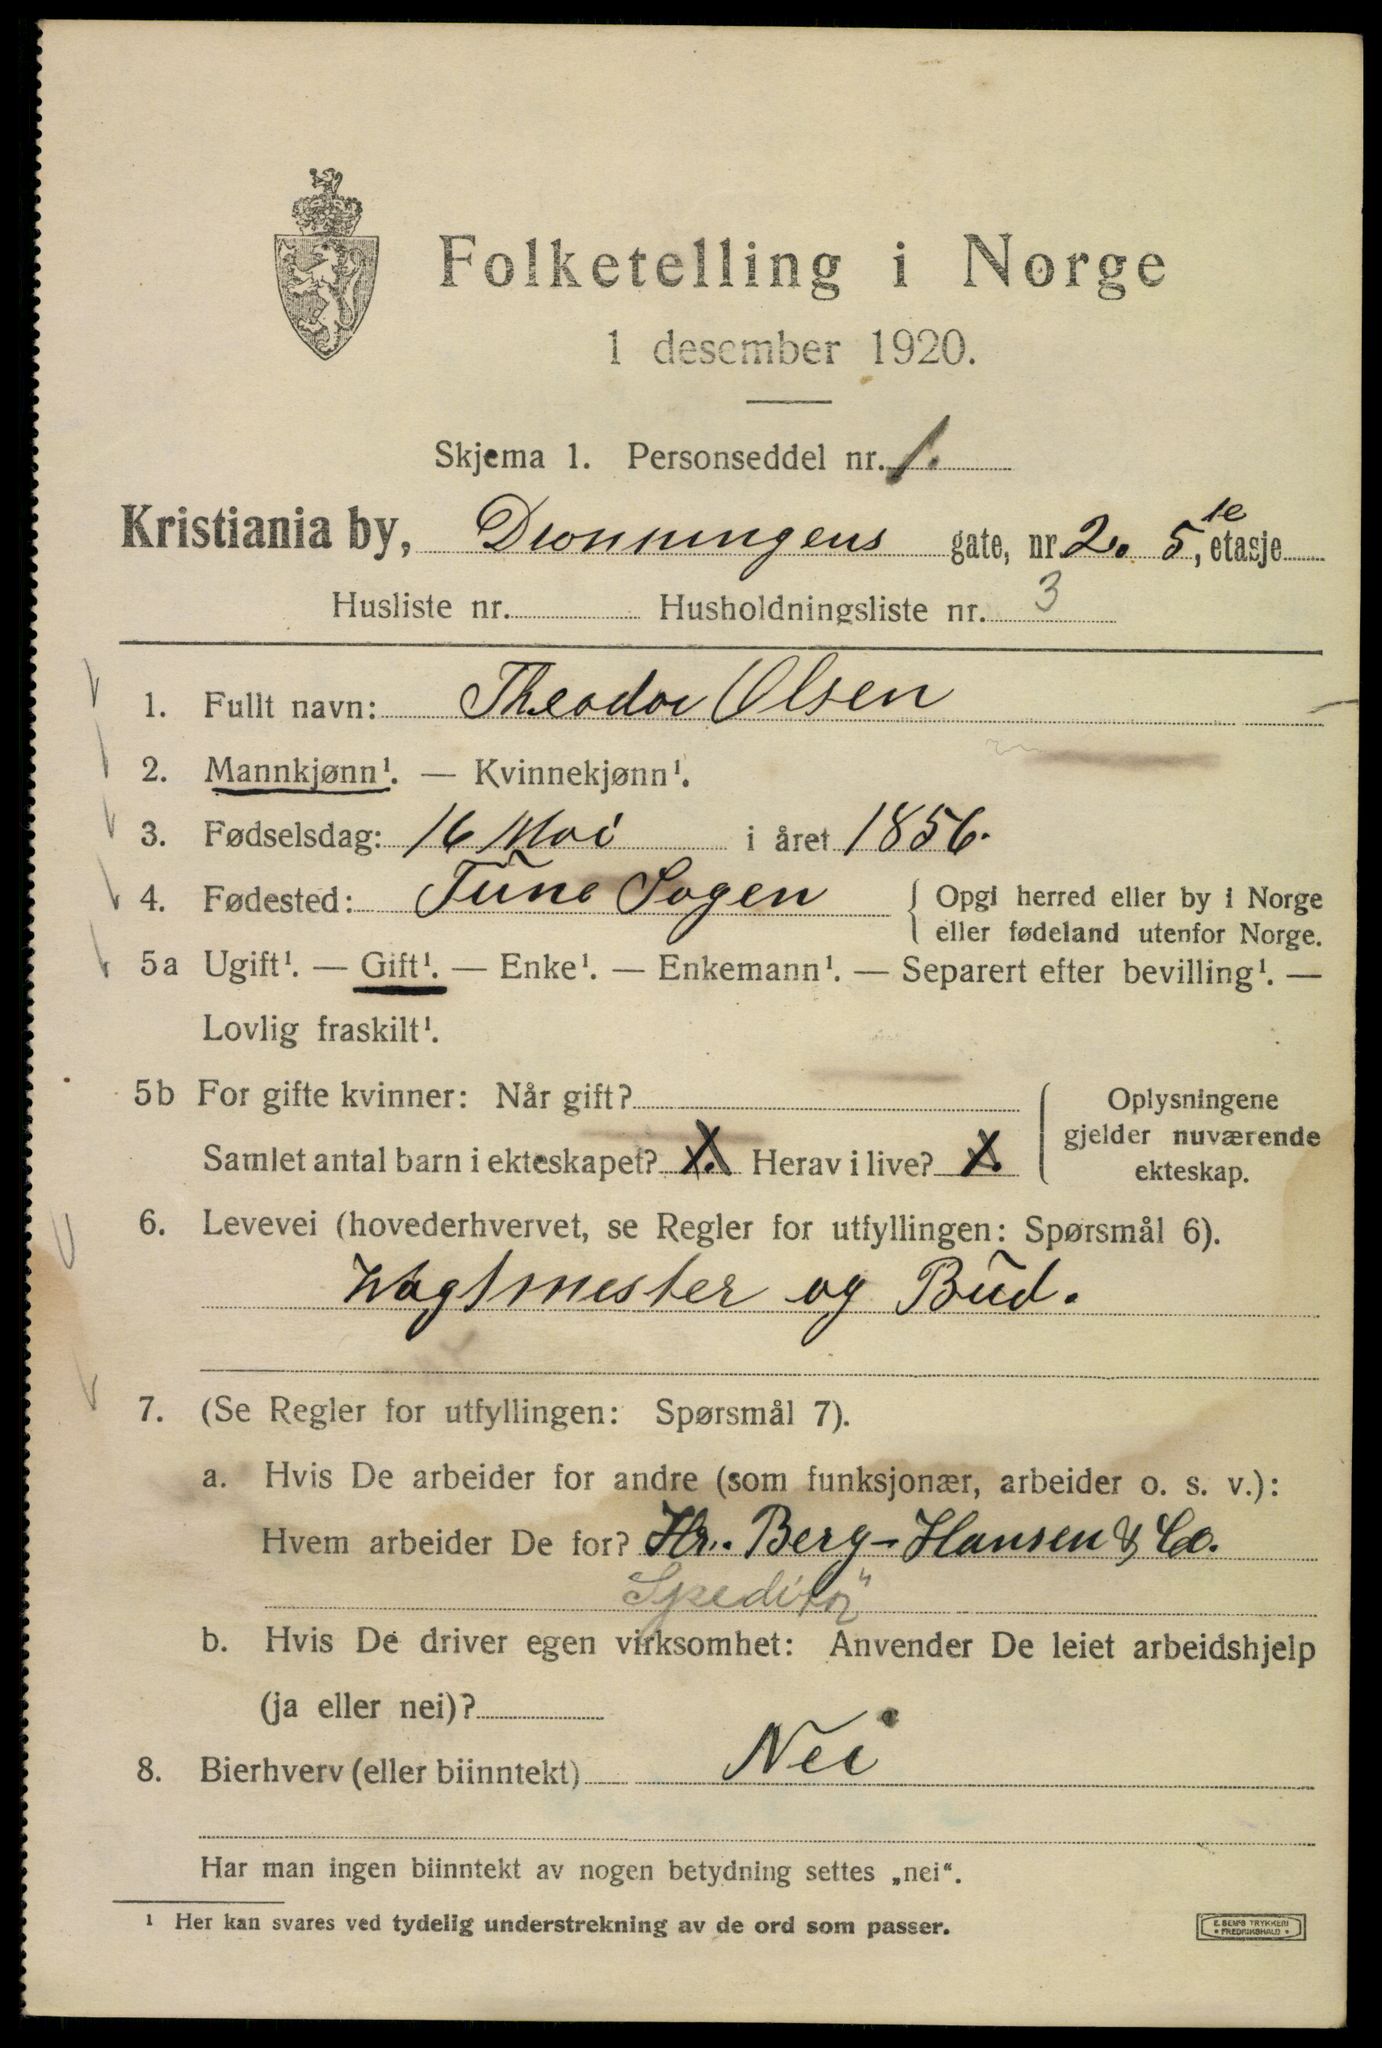 Folketelling i Norge
1 desember 1920.
Skjema 1. Personseddel nr. 1.
Kristiania by, Dronningens gate, nr. 2. 5te, etasje
Husliste nr. Husholdningsliste nr. 3
1. Fullt navn: Theodor Olsen
2. Mannkjønn¹. — Kvinnekjønn¹.
3. Fødselsdag: 16 Mai i året 1856.
4. Fødested: Tune Sogen { Opgi herred eller by i Norge
eller fødeland utenfor Norge.
5a Ugift¹. — Gift¹. — Enke¹. — Enkemann¹. — Separert efter bevilling¹. —
Lovlig fraskilt¹.
5b For gifte kvinner: Når gift? { Oplysningene
gjelder nuværende
Samlet antal barn i ekteskapet? X. Herav i live? X.
ekteskap.
6. Levevei (hovederhvervet, se Regler for utfyllingen: Spørsmål 6).
Wagtmester og Bud.
7. (Se Regler for utfyllingen: Spørsmål 7).
a. Hvis De arbeider for andre (som funksjonær, arbeider o. s. v.):
Hvem arbeider De for? Hr. Berg-Hansen & Co.
Speditör
b. Hvis De driver egen virksomhet: Anvender De leiet arbeidshjelp
(ja eller nei)?
8. Bierhverv (eller biinntekt) Nei
Har man ingen biinntekt av nogen betydning settes „nei“.
¹ Her kan svares ved tydelig understrekning av de ord som passer.
E. SEMS TRYKKERI
• FREDRIKSHALD •